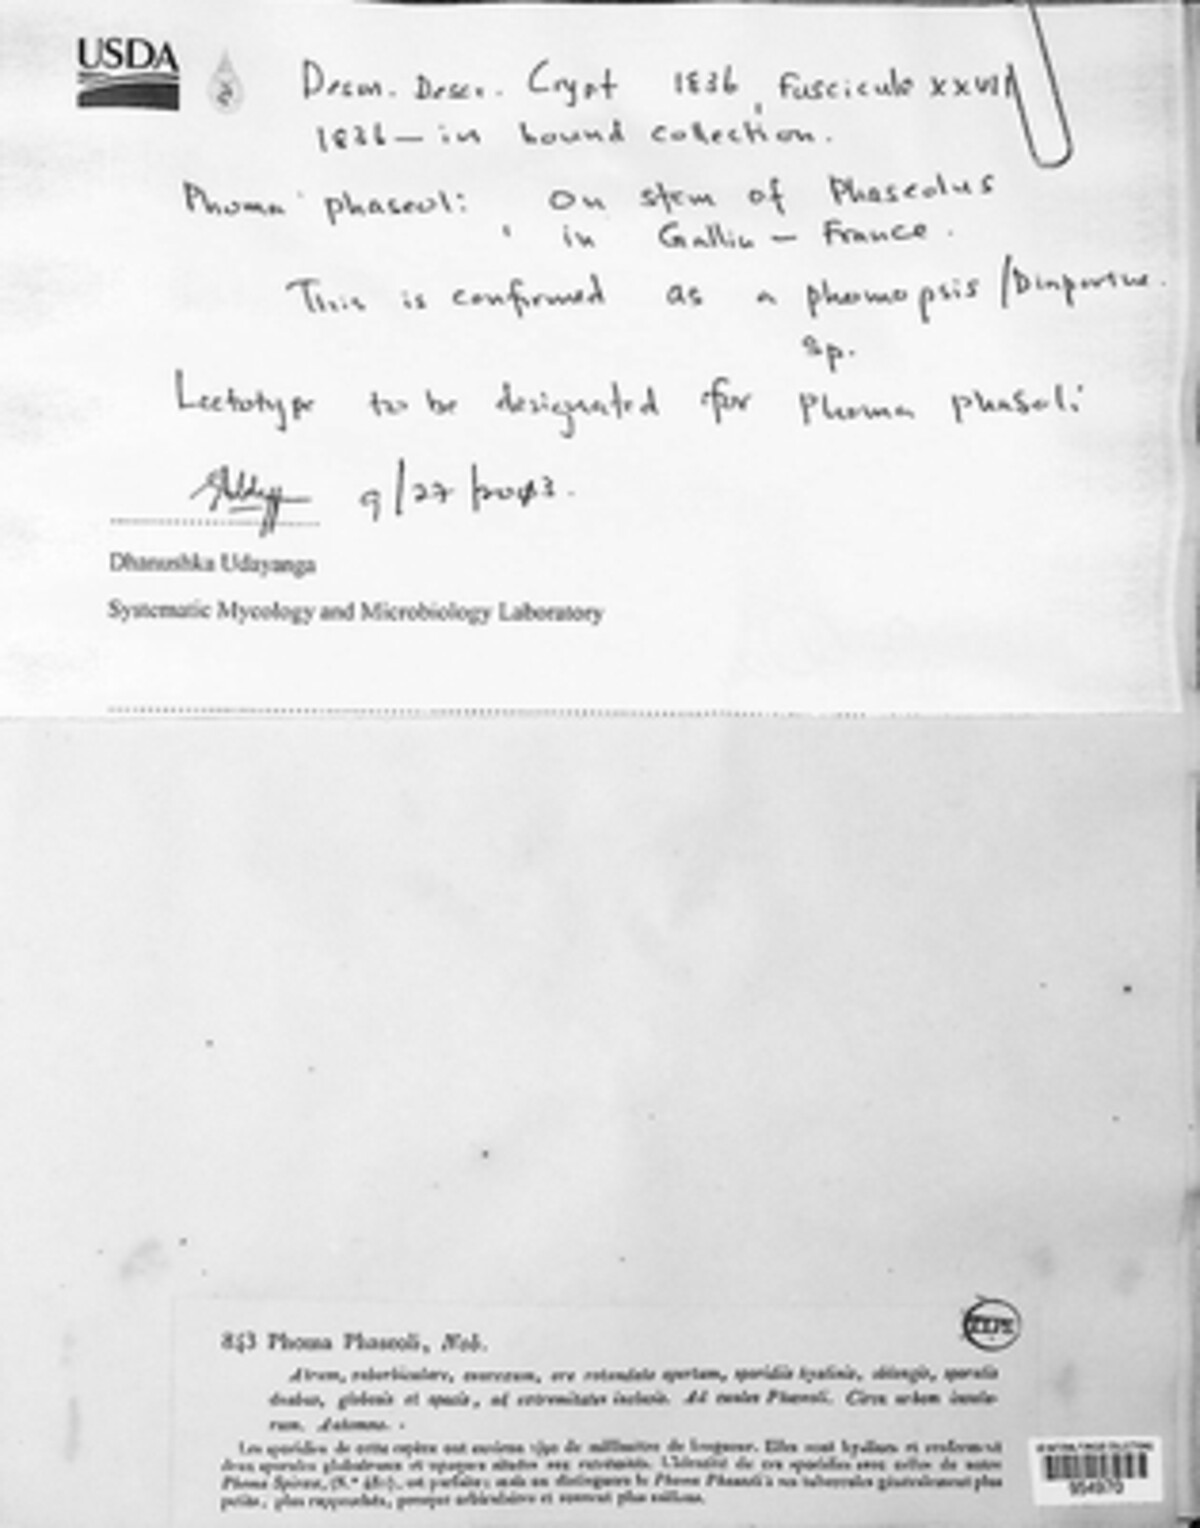 USDA
Desm. Descr. Crypt 1836, Fuscicule XXVII
1836 — in bound collection.
Phoma phaseoli: On stem of Phaseolus
in Gallia — France.
This is confirmed as a phomopsis / Diaporthe.
sp.
Lectotype to be designated for Phoma phaseoli
9/27/2013.
Dhanushka Udayanga
Systematic Mycology and Microbiology Laboratory
843 Phoma Phaseoli, Nob.
Atrum, suborbiculare, convexum, ore rotundato apertum, sporidiis hyalinis, oblongis, sporulis
duabus, globosis et opacis, ad extremitates inclusis. Ad caules Phaseoli. Circa urbem insula-
rum. Automne.
Les sporidies de cette espèce ont environ de millimètre de longueur. Elles sont hyalines et renferment
deux sporules globuleuses et opaques situées aux extrémités. L'identité de ces sporidies avec celles de notre
Phoma Spiraeae, est parfaite; mais on distinguera le Phoma Phaseoli à ses tubercules généralement plus
petits, plus rapprochés, presque orbiculaires et souvent plus saillans.
US NATIONAL FUNGUS COLLECTIONS